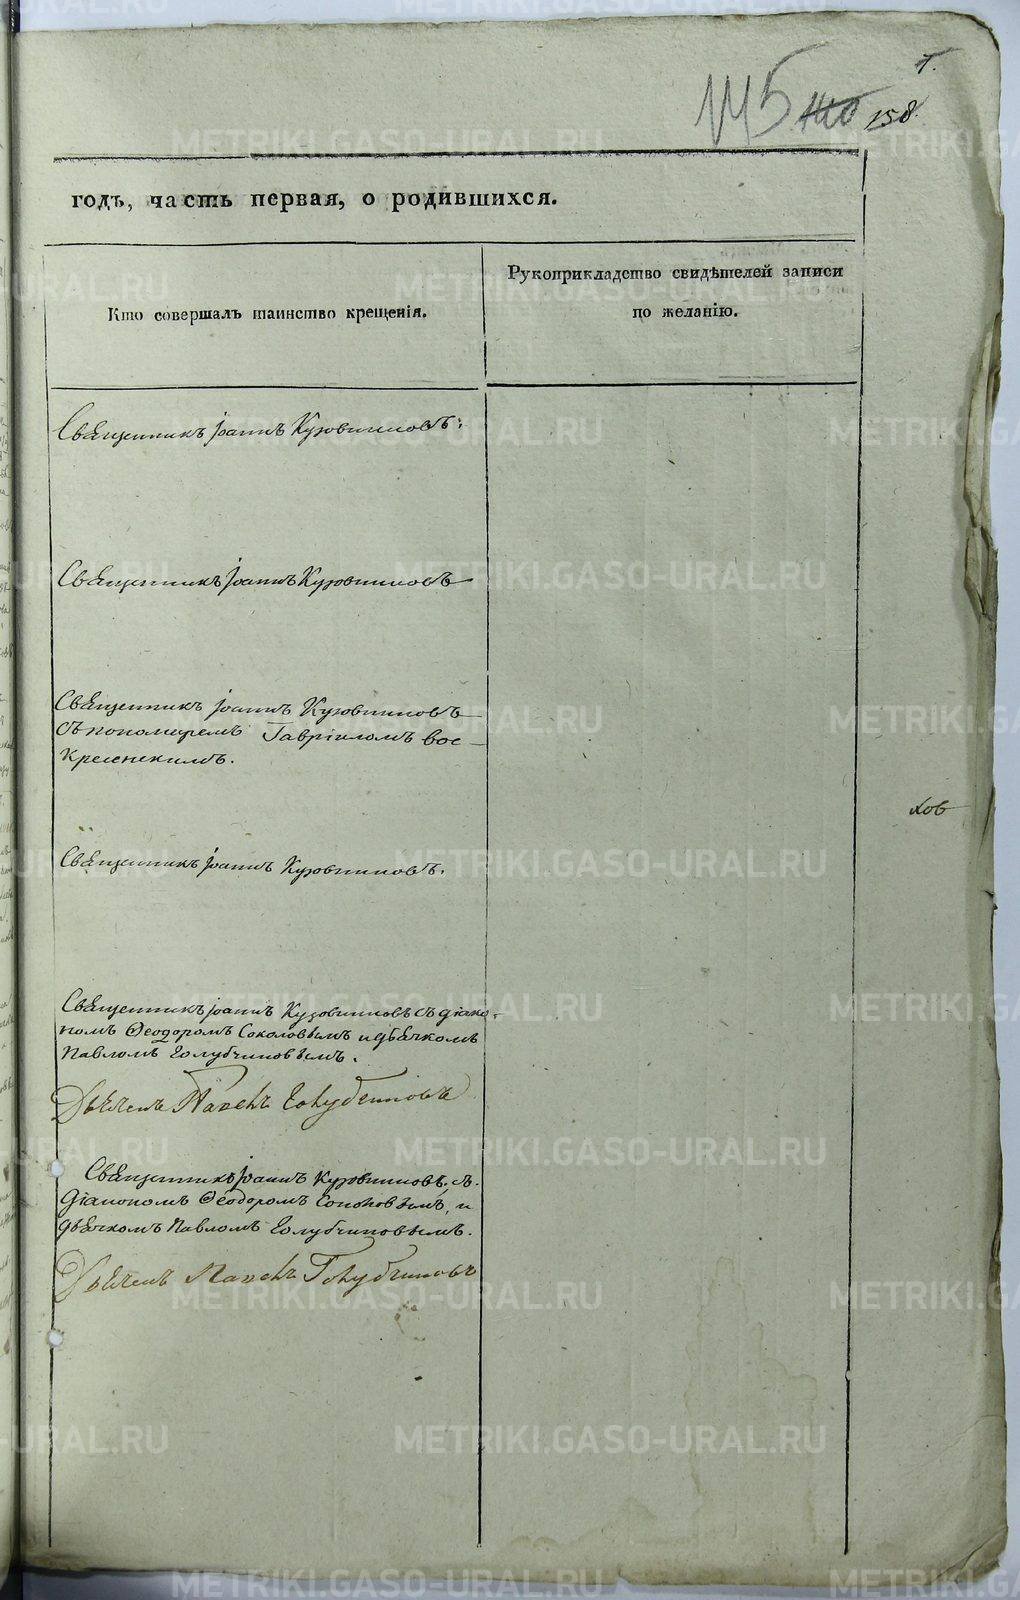 7.
145 140 158.
годъ, часть первая, о родившихся.
Кто совершалъ таинство крещенія.
Рукоприкладство свидѣтелей записи
по желанію.
Священникъ Іоаннъ Кузовниковъ.
Священникъ Іоаннъ Кузовниковъ
Священникъ Іоаннъ Кузовниковъ
съ пономаремъ Гавріиломъ Вос-
кресенскимъ.
ков
Священникъ Іоаннъ Кузовниковъ.
Священникъ Іоаннъ Кузовниковъ съ діако-
номъ Ѳеодоромъ Соколовымъ и дьячкомъ
Павломъ Голубчиковымъ.
Дьячекъ Павелъ Голубчиковъ
Священникъ Іоаннъ Кузовниковъ, съ
Діакономъ Ѳеодоромъ Соколовымъ, и
дьячкомъ Павломъ Голубчиковымъ.
Дьячекъ Павелъ Голубчиковъ
METRIKI.GASO-URAL.RU